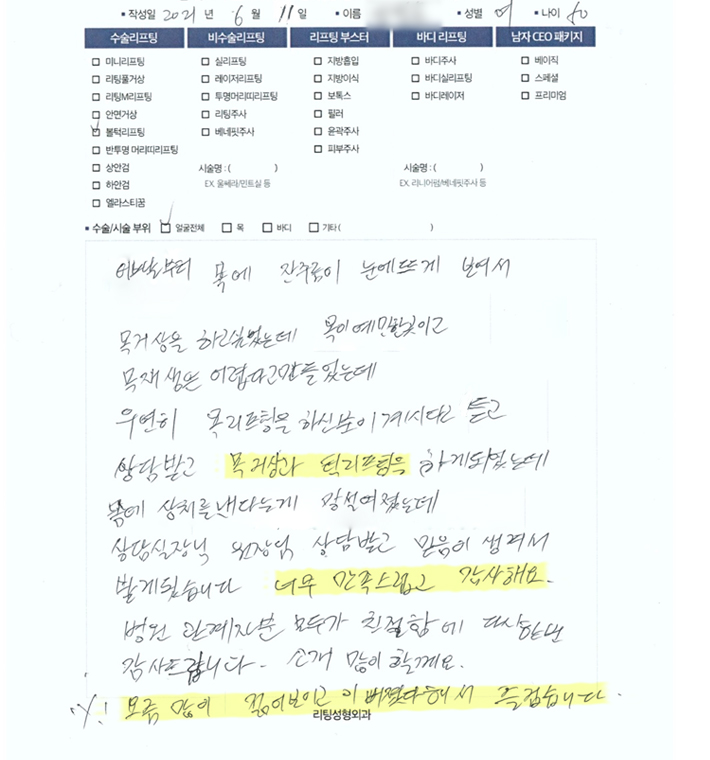 • 작성일 2021 년 6 월 11 일 • 이름 • 성별 여 • 나이 60
수술리프팅 비수술리프팅 리프팅 부스터 바디 리프팅 남자 CEO 패키지
미니리프팅 실리프팅 지방흡입 바디주사 베이직
리팅풀거상 레이저리프팅 지방이식 바디실리프팅 스페셜
리팅M리프팅 투명머리띠리프팅 보톡스 바디레이저 프리미엄
안면거상 리팅주사 필러
볼턱리프팅 베네핏주사 윤곽주사
반투명 머리띠리프팅 피부주사
상안검 시술명 : ( ) 시술명 : ( )
하안검 EX. 울쎄라/민트실 등 EX. 리니어펌/베네핏주사 등
엘라스티꿈
• 수술/시술 부위 얼굴전체 목 바디 기타 ( )
목에 잔주름이 눈에뜨게 보여서
목거상을 하고싶었는데 목이예민한곳이고
어렵다고 있는데
우연히 목리프팅을 하신분이 계시다고 듣고
상담받고 목거상과 턱리프팅을 하게되었는데
목에 상처를낸다는게 망설여졌는데
상담실장님 원장님 상담받고 믿음이 생겨서
받게됬습니다 너무 만족스럽고 감사해요.
병원 관계자분 모두가 친절함에 다시한번
감사드립니다. 소개 많이 할께요.
요즘 많이 젊어보이고 이뻐졌다해서 즐겁습니다.
리팅성형외과